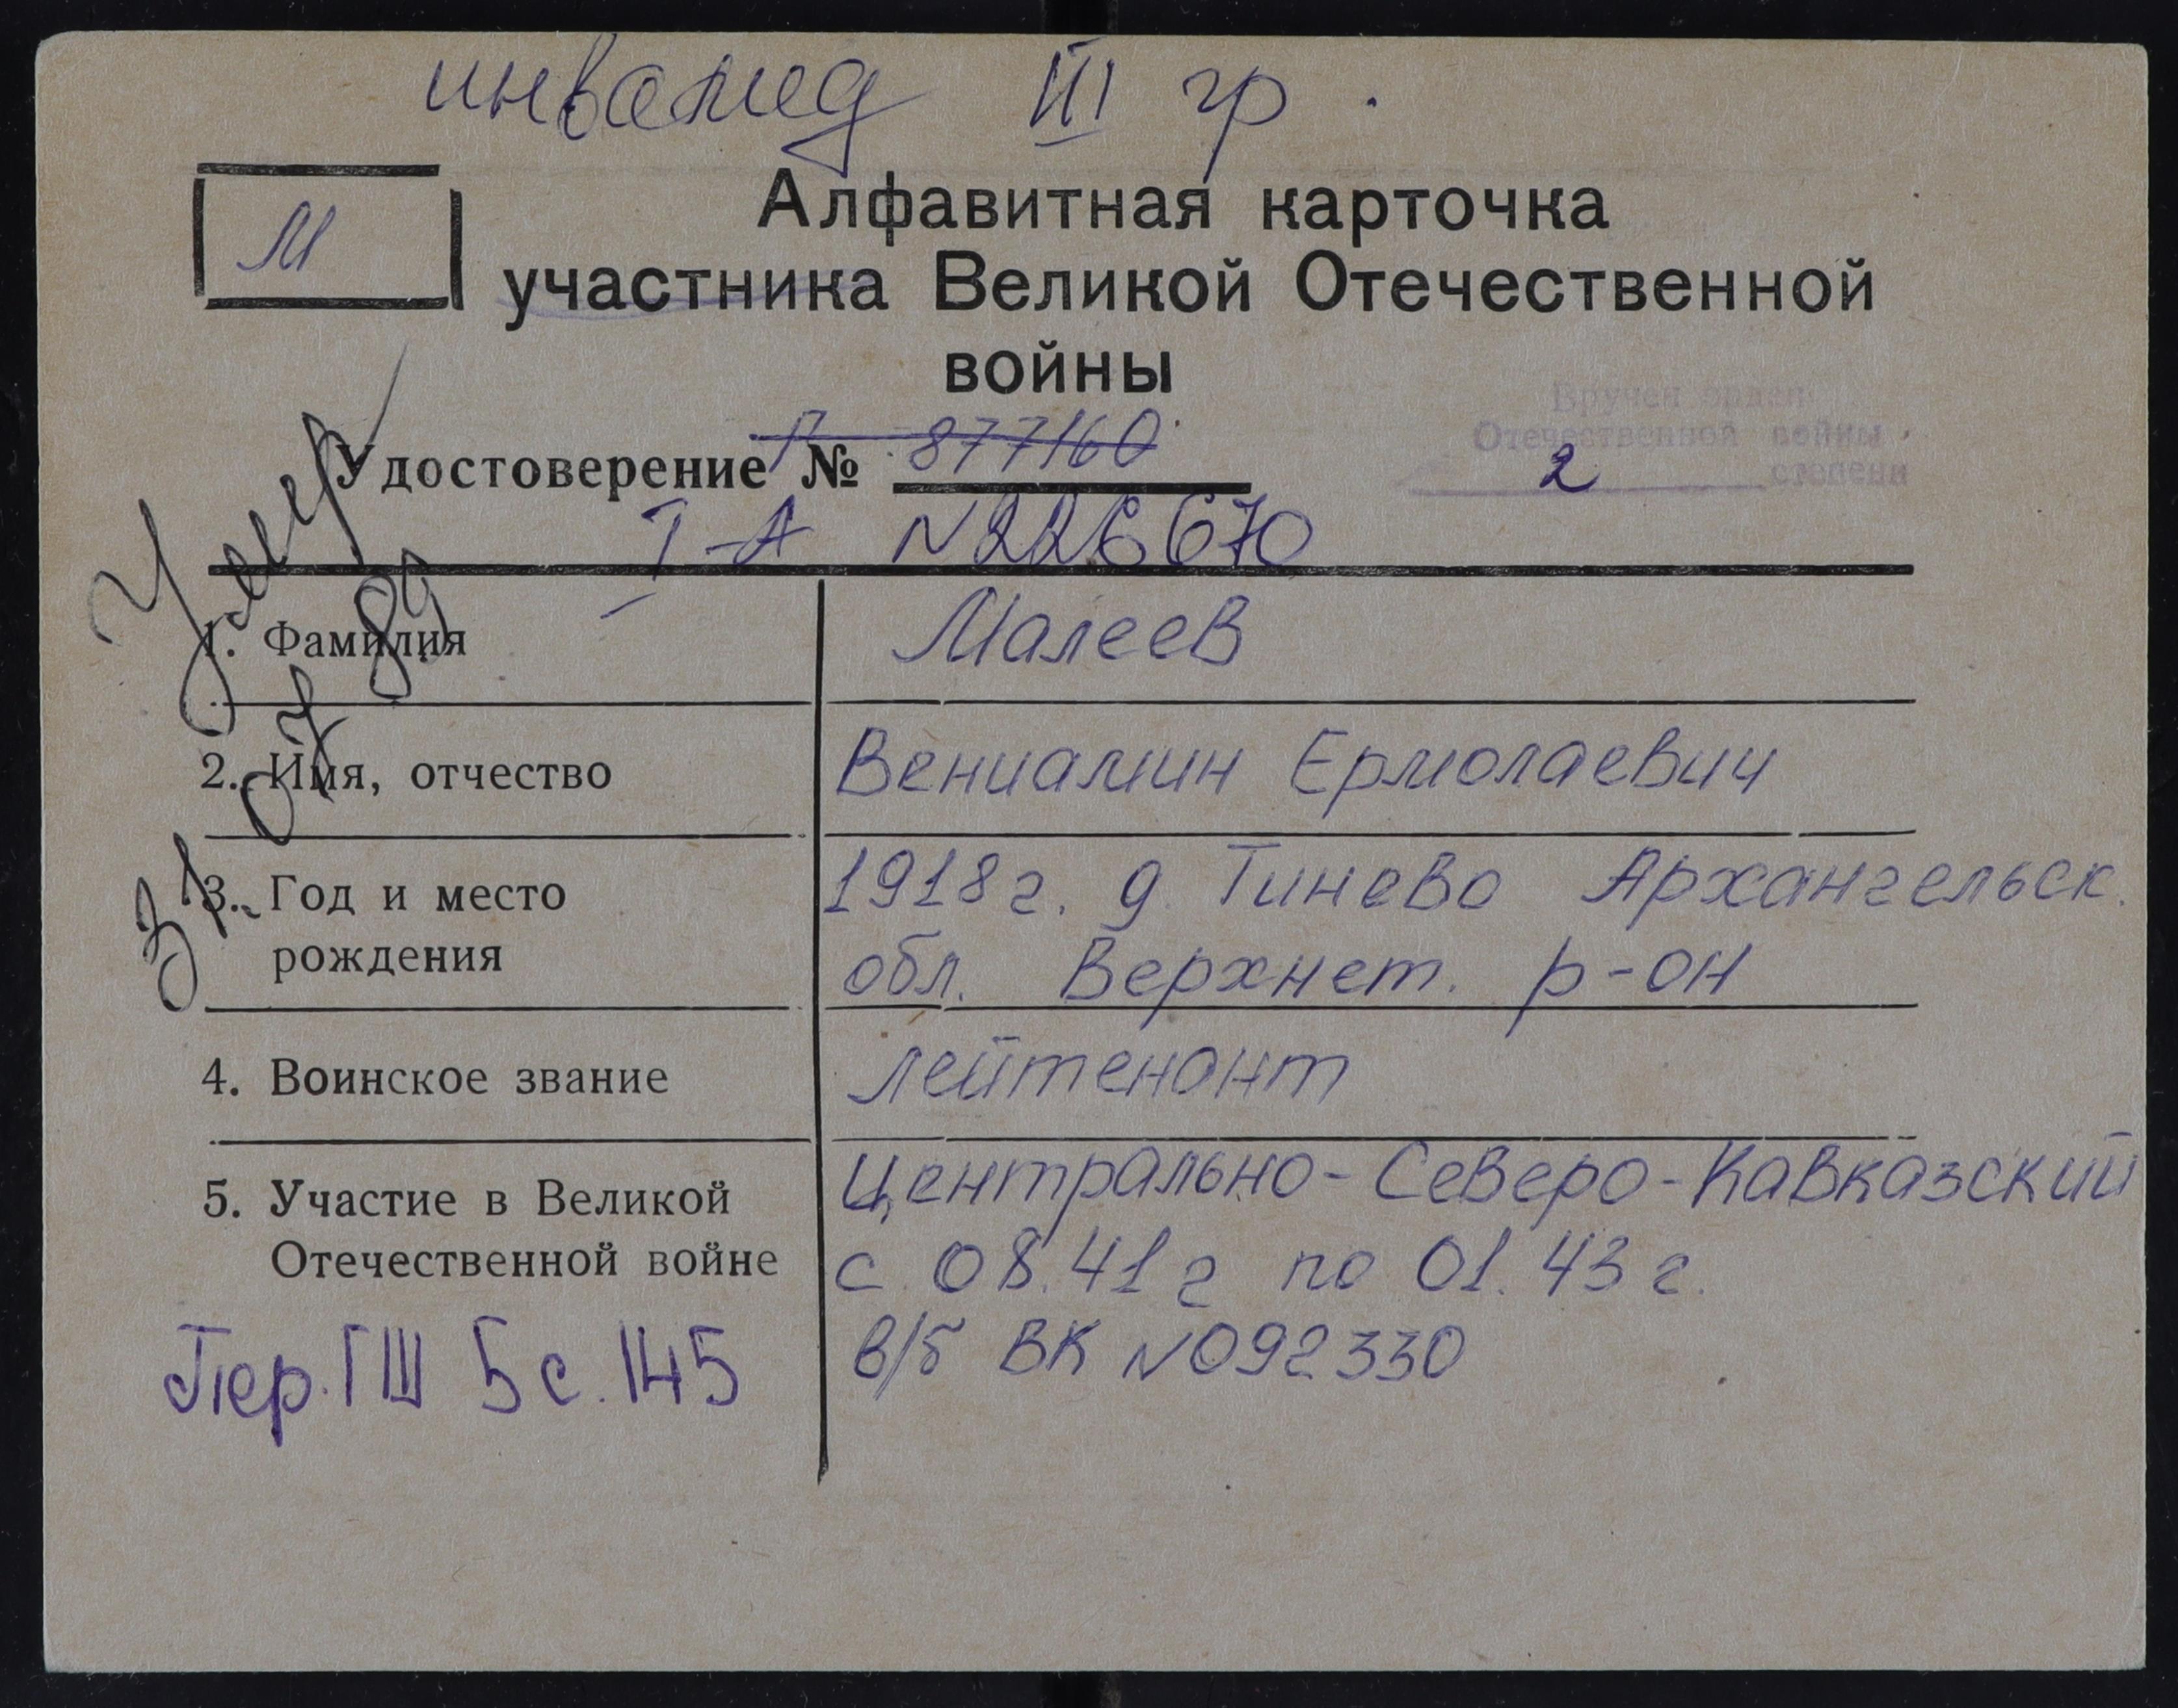 инвалид III гр.
М
Алфавитная карточка
участника Великой Отечественной
войны
Вручен орден
Отечественной войны
2 степени
П 877160
Удостоверение №
Т-А N226670
Умер
31 07 89
1. Фамилия
Малеев
2. Имя, отчество
Вениамин Ермолаевич
3. Год и место
рождения
1918г. д. Тинево Архангельск.
обл. Верхнет. р-он
4. Воинское звание
лейтенант
5. Участие в Великой
Отечественной войне
Центрально-Северо-Кавказский
с 08.41г по 01.43г.
в/б ВК N092330
Пер. ГШ 5 с. 145